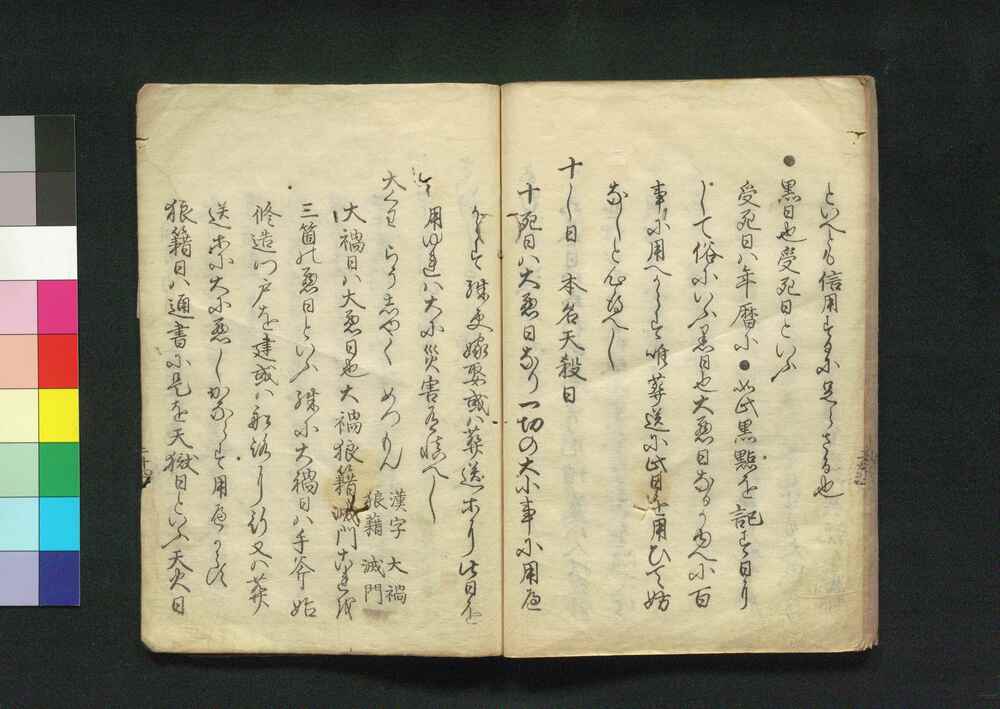 といへども信用するに足らざる也
● 黒日也受死日といふ
受死日ハ年暦に ● 如此黒點を記す日なり
して俗にいふ黒日也大悪日なるゆへに百
事に用へからず唯葬送に此日を用ひて妨
なしと心得べし
十し日 日本名天殺日
十死日ハ大悪日なり一切の大小事に用ゆ
からず殊更嫁娶或ハ葬送等り此日を
用ゆれハ大小災害有慎べし
大くわ らうしやく めつもん 漢字 大禍
狼藉 滅門
大禍日ハ大悪日也大禍狼藉滅門これを
三箇の悪日といふ殊に大禍日ハ手斧始
修造門戸を建或ハ船路り行又ハ葬
送等に大に悪しかならず用ゆべからず
狼藉日ハ通書に是を天獄日といふ天火日